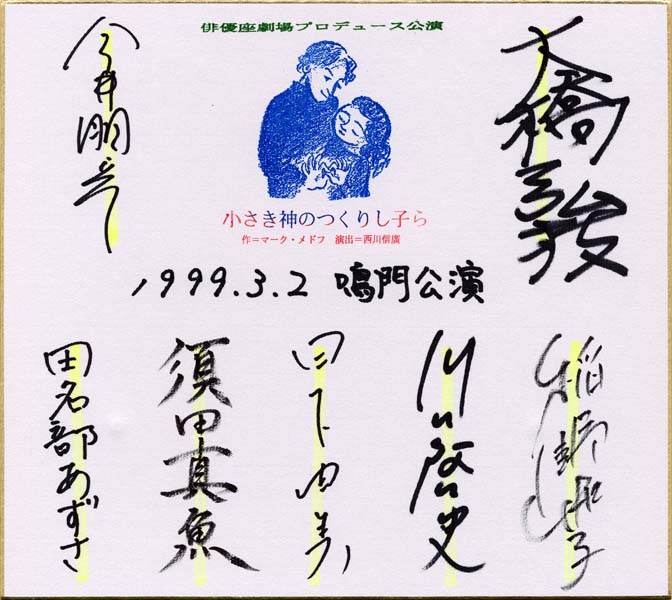 俳優座劇場プロデュース公演
小さき神のつくりし子ら
作＝マーク・メドフ　演出＝西川信廣
大橋弘枝
今井朋彦
1999.3.2 鳴門公演
川口啓史
日下由美
須田真魚
田名部あずさ